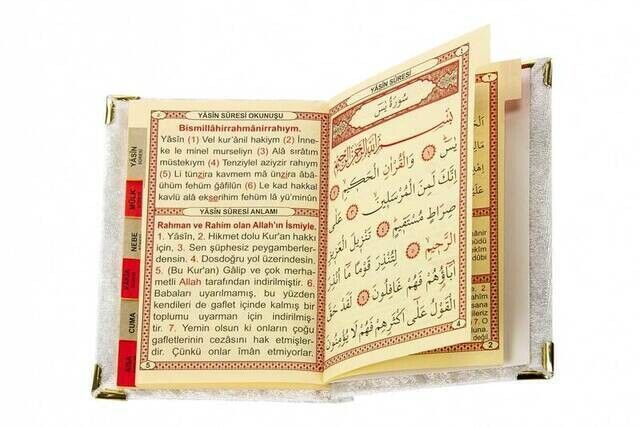 YÂSÎN SÛRESİ OKUNUŞU
Bismillâhirrahmânirrahıym.
Yâsîn (1) Vel kur'ânil hakiym (2) İnne-
ke le minel murseliyn (3) Alâ sırâtım
müstekıym (4) Tenziylel aziyzir rahıym
(5) Li tünzira kavmem mâ ünzira âbâ-
ühüm fehüm ğâfilûn (6) Le kad hakkal
kavlü alâ ekserihim fehüm lâ yü'minûn
YÂSÎN SÛRESİ ANLAMI
Rahman ve Rahim olan Allah'ın İsmiyle.
1. Yâsîn, 2. Hikmet dolu Kur'an hakkı
için, 3. Sen şüphesiz peygamberler-
densin. 4. Dosdoğru yol üzerindesin.
5. (Bu Kur'an) Gâlip ve çok merha-
metli Allah tarafından indirilmiştir. 6.
Babaları uyarılmamış, bu yüzden
kendileri de gaflet içinde kalmış bir
toplumu uyarman için indirilmiş-
tir. 7. Yemin olsun ki onların çoğu
gafletlerinin cezasını hak etmişler-
dir. Çünkü onlar îman etmiyorlar.
5
YÂSÎN
MÜLK
NEBE
CUMA
YÂSÎN SÛRESİ
سُورَةُ يٰسٓ
بِسْمِ اللهِ الرَّحْمٰنِ الرَّحِيمِ
يٰسٓ ﴿١﴾ وَالْقُرْاٰنِ الْحَكِيمِ ﴿٢﴾
اِنَّكَ لَمِنَ الْمُرْسَلِينَ ﴿٣﴾ عَلٰى
صِرَاطٍ مُسْتَقِيمٍ ﴿٤﴾ تَنْزِيلَ الْعَزِيزِ
الرَّحِيمِ ﴿٥﴾ لِتُنْذِرَ قَوْمًا مَا اُنْذِرَ
اٰبَاؤُهُمْ فَهُمْ غَافِلُونَ ﴿٦﴾ لَقَدْ حَقَّ
الْقَوْلُ عَلٰى اَكْثَرِهِمْ فَهُمْ لَا يُؤْمِنُونَ
4
2